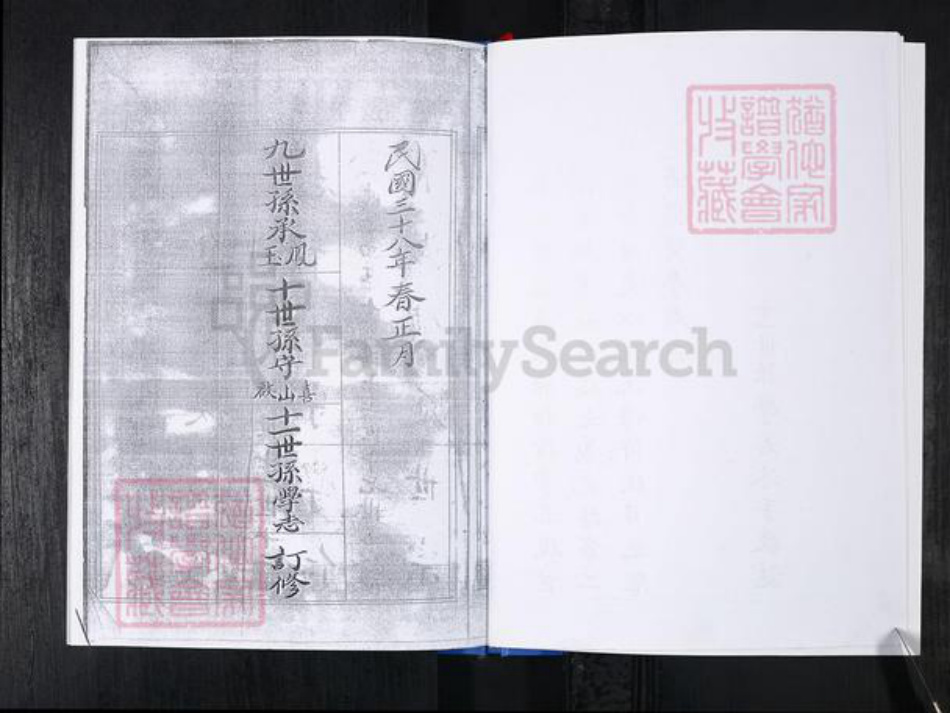 民國三十八年春正月
九世孫承鳳玉 十世孫守喜山啟 十一世孫學志 訂修
猶他家譜學會收藏
猶他家譜學會收藏
FamilySearch